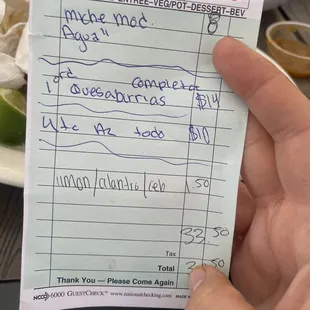 ENTREE–VEG/POT–DESSERT–BEV
Miche Mod. 8
Agua"
1 ord Completa
Quesabirrias $14
4 tc Az todo $10
limon/cilantro/ceb 1 50
33 50
Tax
Total 3 50
Thank You — Please Come Again
NCCO 6000 GUESTCHECK™ www.nationalchecking.com MADE